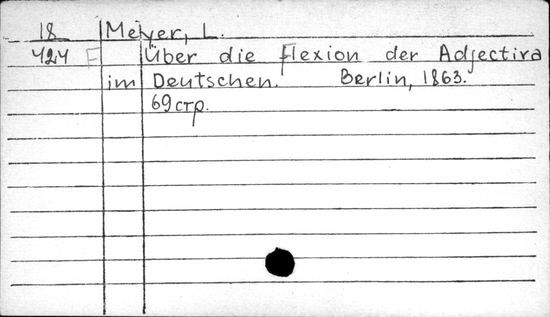 18 Meyer, L.
424 F Über die flexion der Adjectiva
im Deutschen. Berlin, 1863.
69 стр.